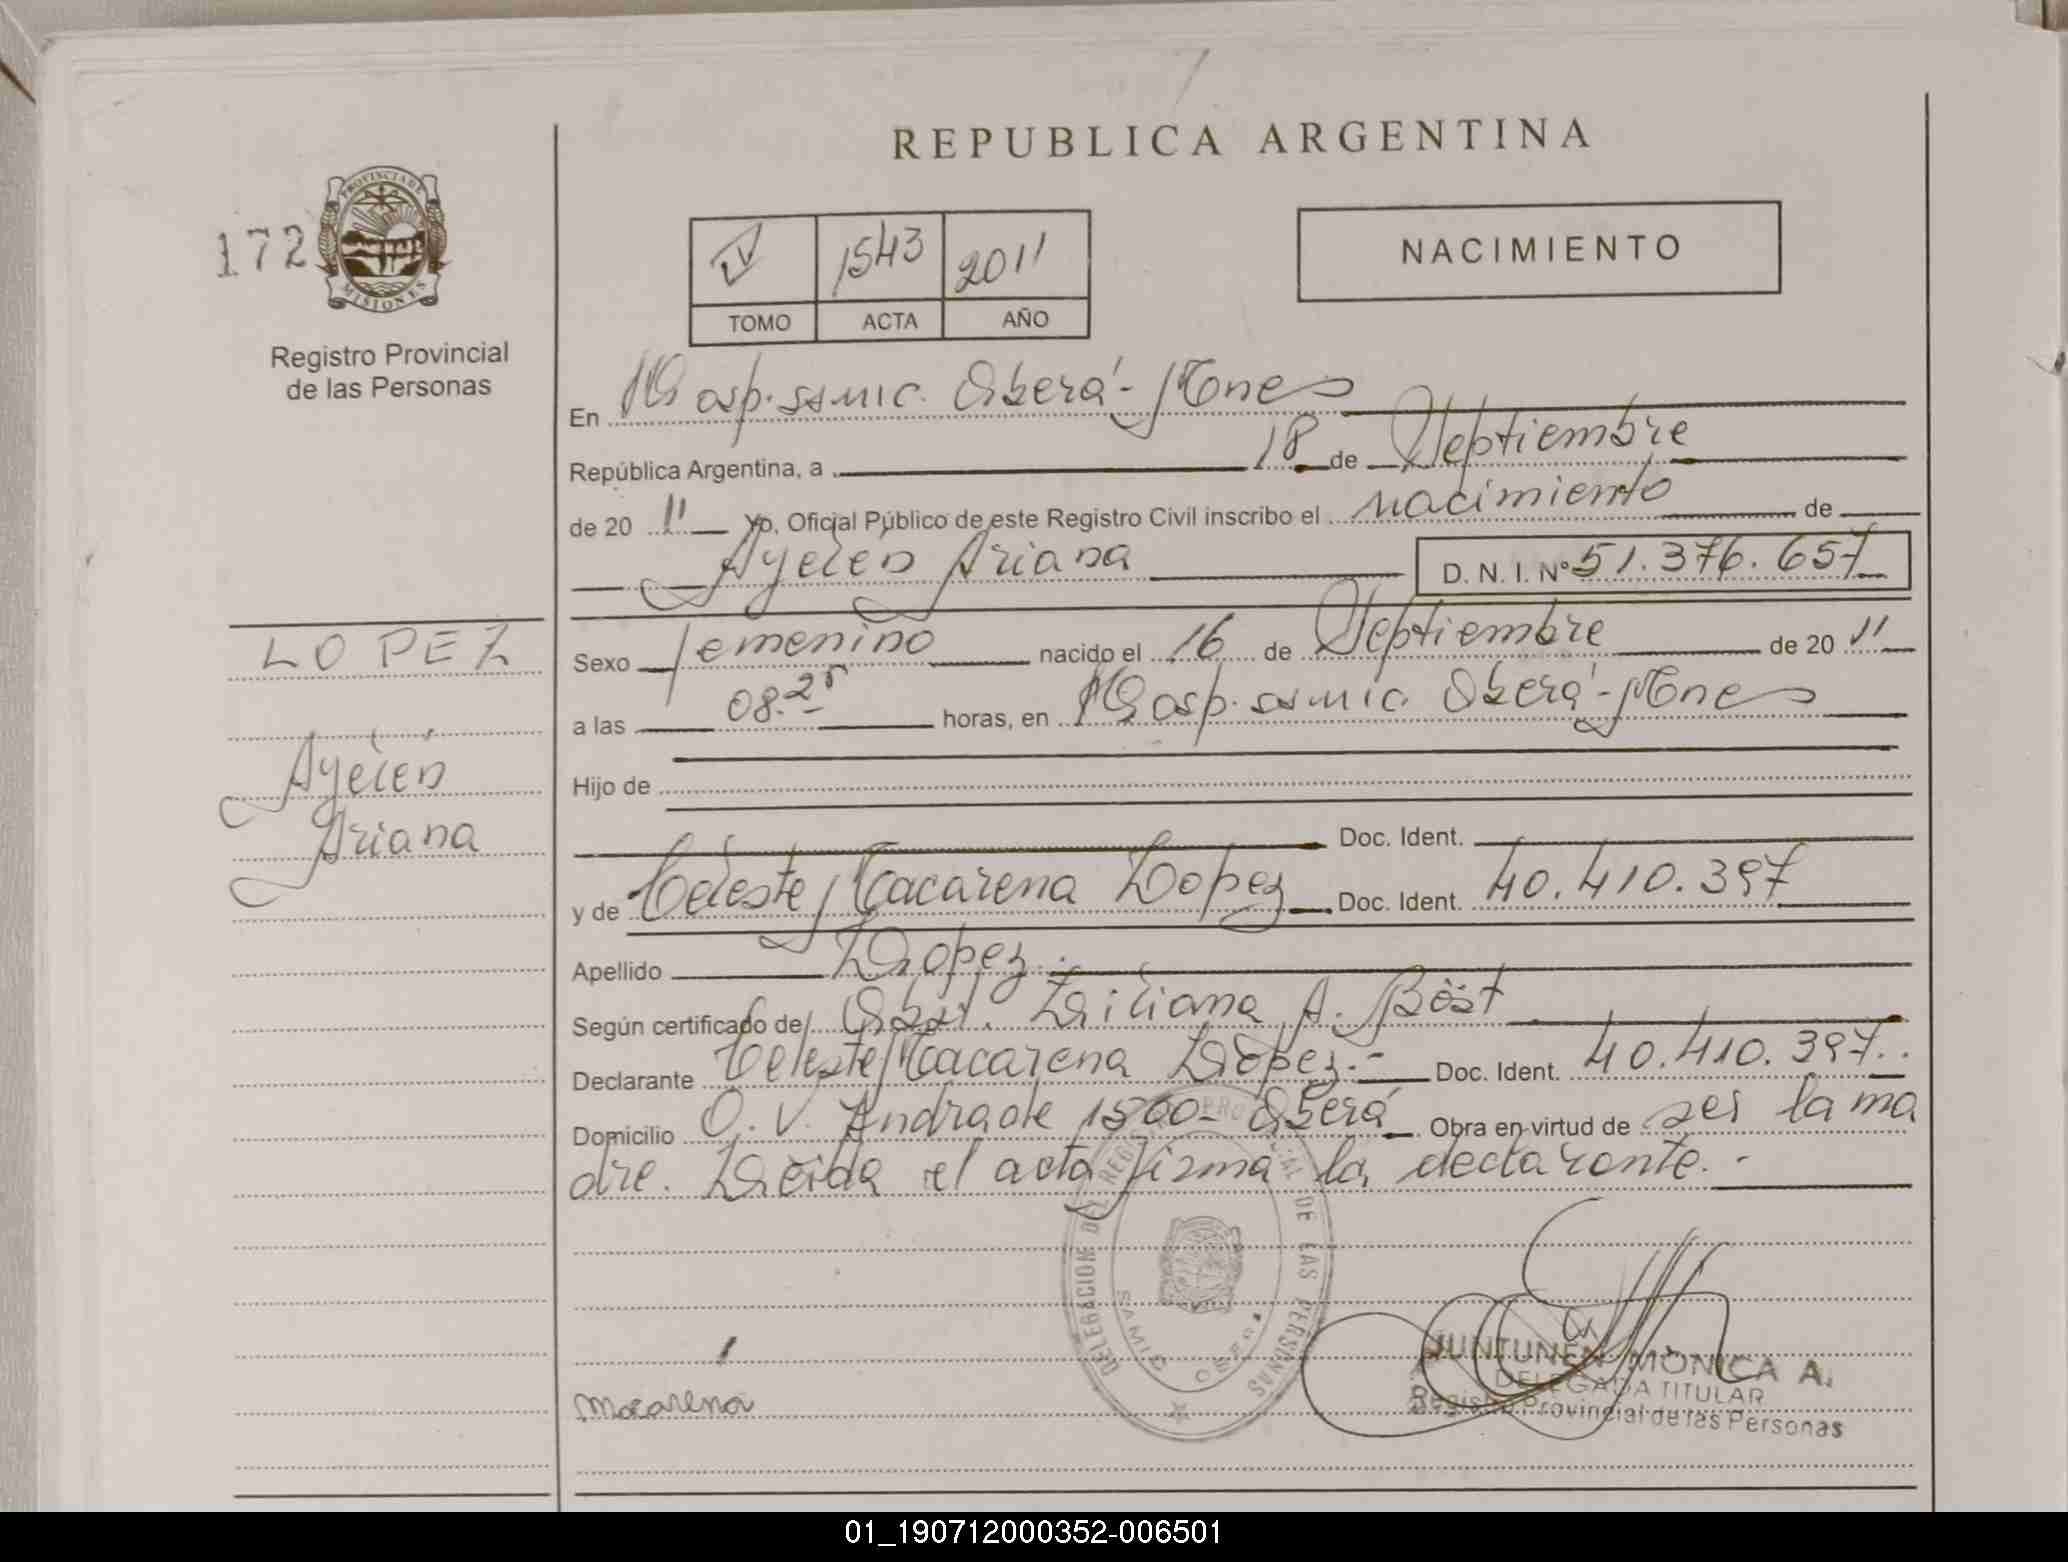 REPUBLICA ARGENTINA
172
PROVINCIA DE
MISIONES
Registro Provincial
de las Personas
IV 1543 2011
TOMO ACTA AÑO
NACIMIENTO
En Hosp. Samic. Oberá - Mnes
República Argentina, a 18 de Septiembre
de 20 11 Yo, Oficial Público de este Registro Civil inscribo el nacimiento de
Ayelén Ariana D. N. I. Nº 51.376.657
LOPEZ
Ayelén
Ariana
Sexo femenino nacido el 16 de Septiembre de 20 11
a las 08.25 horas, en Hosp. Samic. Oberá - Mnes
Hijo de
Doc. Ident.
y de Celeste Macarena Lopez Doc. Ident. 40.410.397
Apellido Lopez.
Según certificado de Obst. Liliana A. Bóst
Declarante Celeste Macarena López.- Doc. Ident. 40.410.397.
Domicilio O. V. Andrade 1500- Oberá Obra en virtud de ser la ma
dre. Leída el acta firma la declarante.-
DELEGACION DEL REGISTRO PROVINCIAL DE LAS PERSONAS
SAMIC OBERA
Macarena
JUNTUNEN MONICA A.
DELEGADA TITULAR
Registro Provincial de las Personas
01_190712000352-006501